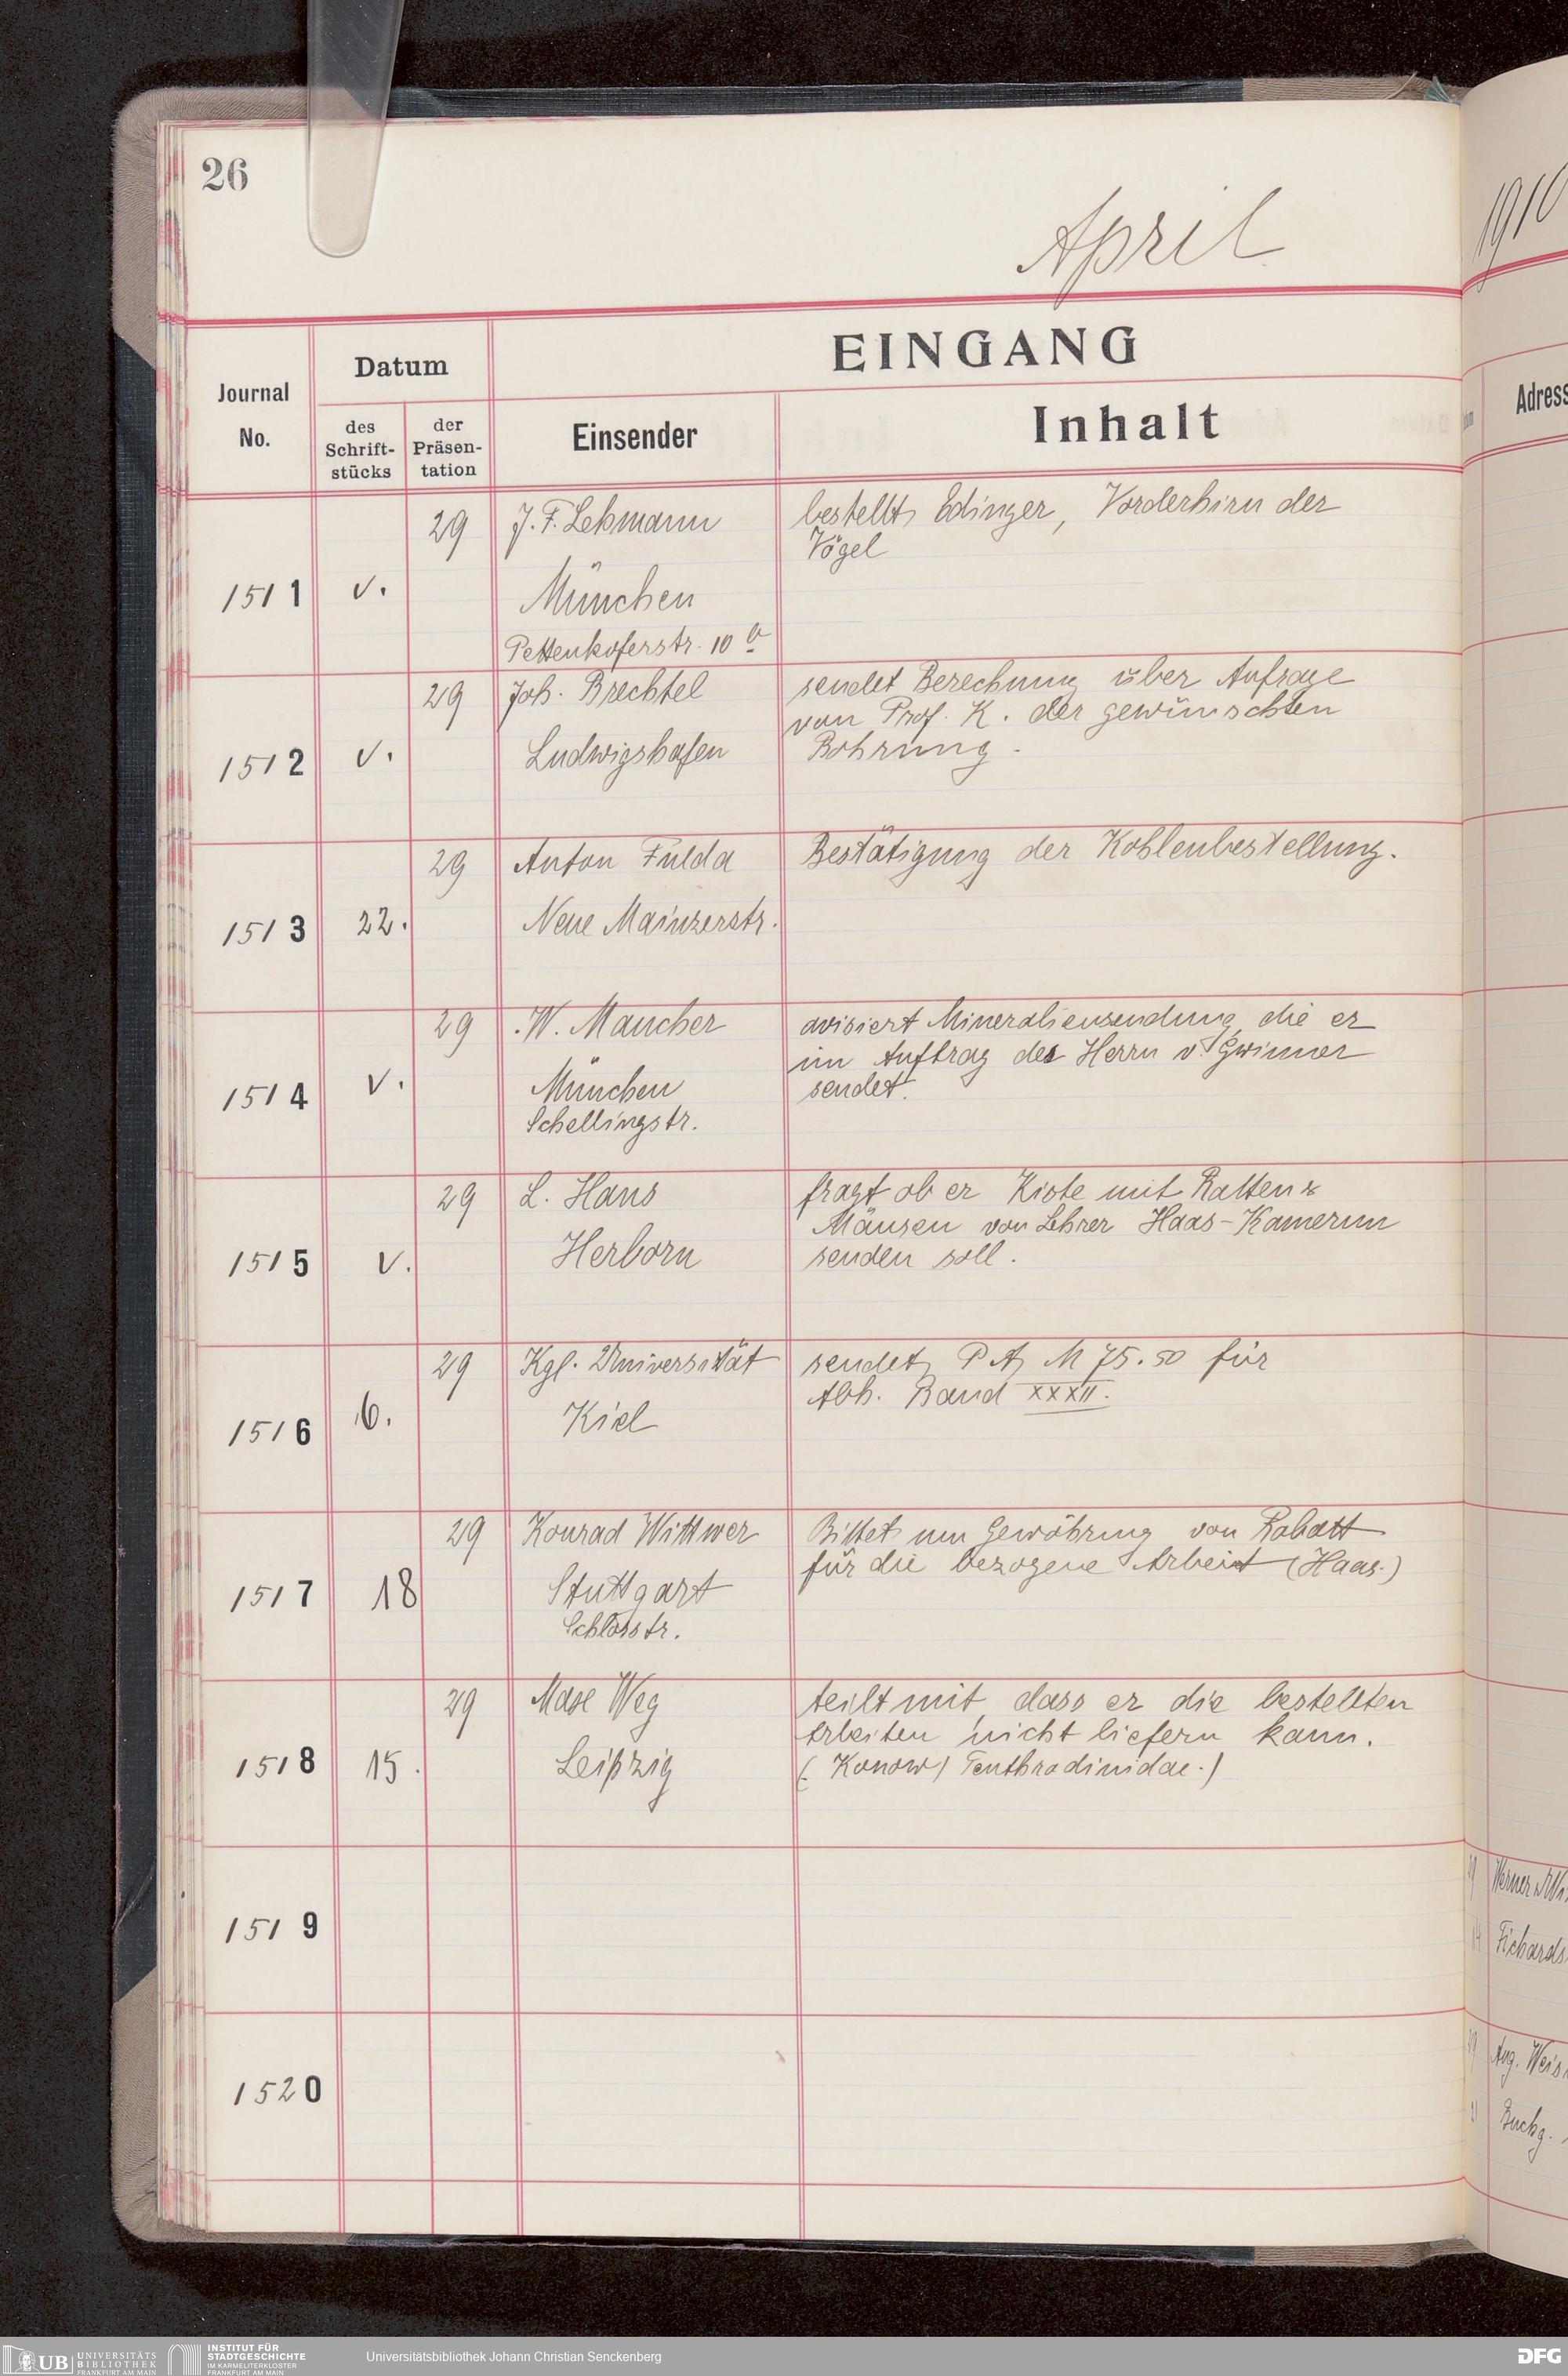 26
April
1910
EINGANG
Journal
No.
Datum
des
Schrift-
stücks
der
Präsen-
tation
Einsender
Inhalt
Adress
1511
v.
29
J. F. Lehmann
München
Pettenkoferstr. 10 a
bestellt Edinger, Vorderhirn der
Vögel
1512
v.
29
Joh. Brechtel
Ludwigshafen
sendet Berechnung über Anfrage
von Prof. K. der gewünschten
Bohrung.
1513
22.
29
Anton Fulda
Neue Mainzerstr.
Bestätigung der Kohlenbestellung.
1514
v.
29
W. Maucher
München
Schellingstr.
avisiert Mineraliensendung, die er
im Auftrag des Herrn v. Gwinner
sendet.
1515
v.
29
L. Haas
Herborn
fragt ob er Kiste mit Ratten &
Mäusen von Lehrer Haas-Kamerun
senden soll.
1516
16.
29
Kgl. Universität
Kiel
sendet P.A. M 75.50 für
Abh. Band XXXII.
1517
18
29
Konrad Wittwer
Stuttgart
Schlosstr.
Bittet um Gewährung von Rabatt
für die bezogene Arbeit (Haas.)
1518
15.
29
Max Weg
Leipzig
teilt mit, dass er die bestellten
Arbeiten nicht liefern kann.
(Konow) Tenthradinidae.)
1519
Werner
Fichards
1520
Aug. Weis
Buchg.
UB UNIVERSITÄTS
BIBLIOTHEK
FRANKFURT AM MAIN
INSTITUT FÜR
STADTGESCHICHTE
IM KARMELITERKLOSTER
FRANKFURT AM MAIN
Universitätsbibliothek Johann Christian Senckenberg
DFG